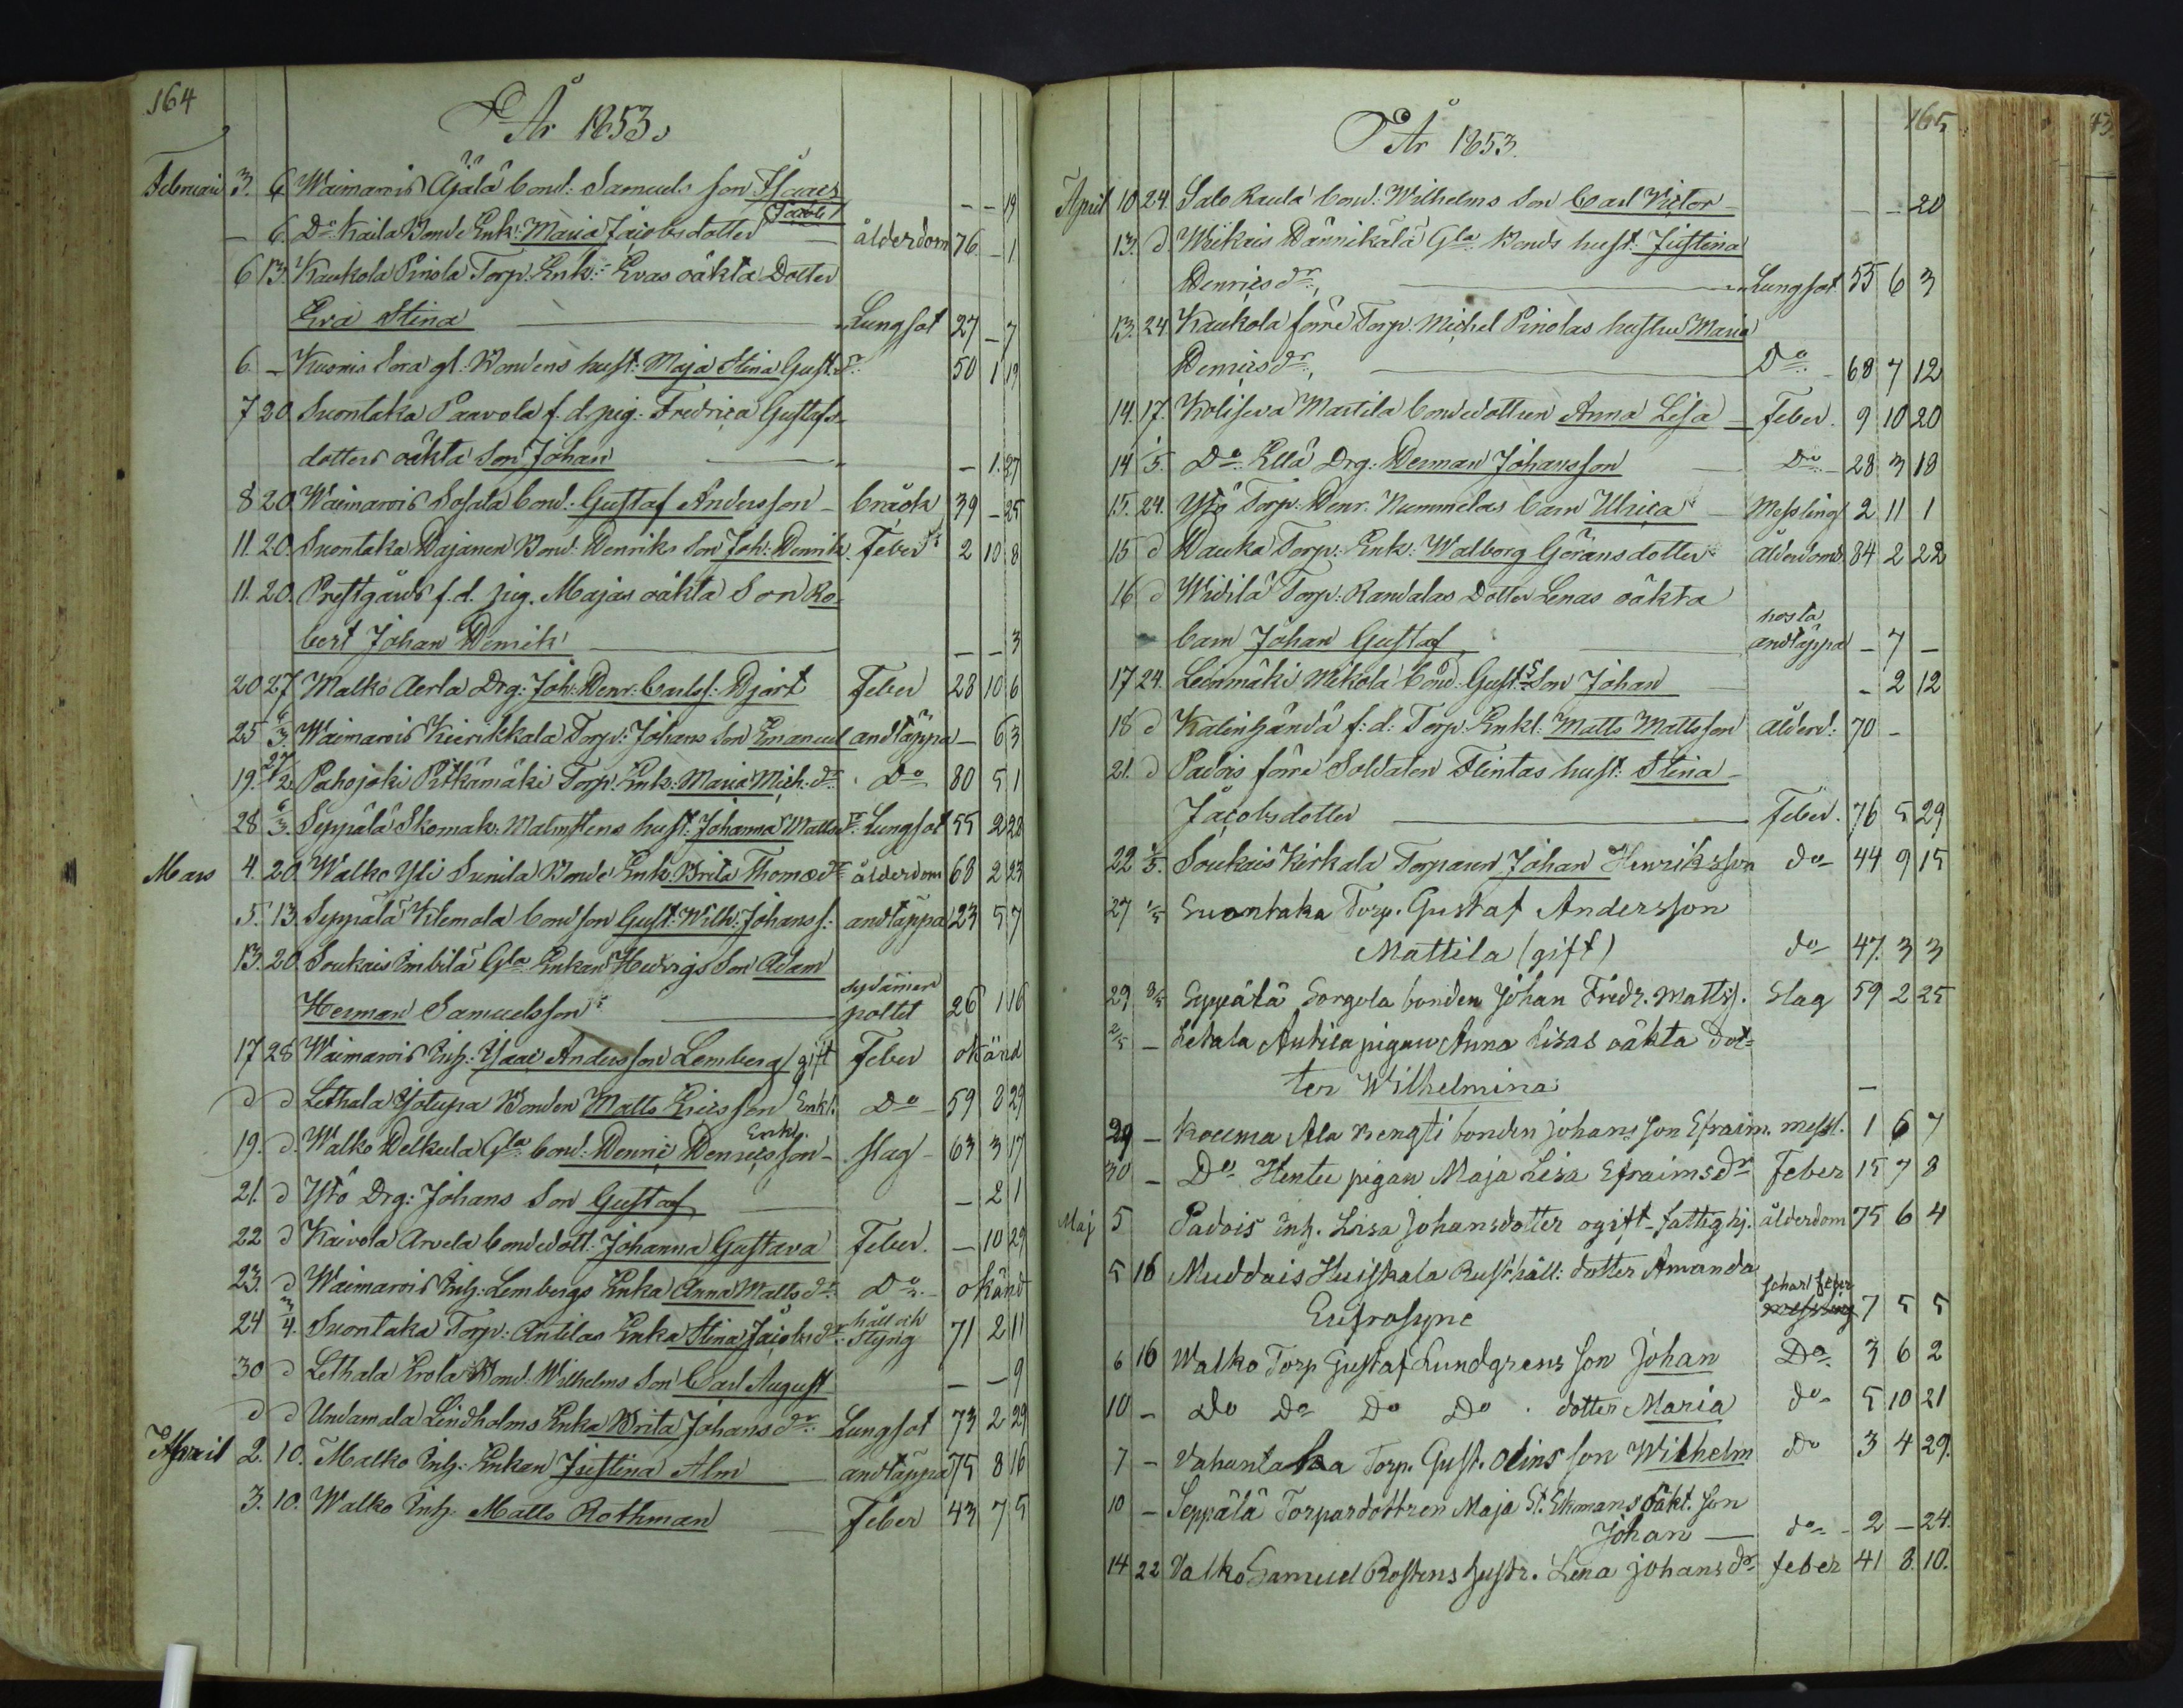 164
År 1853.
Februari 3. 6 Waimaros Äjälä bond: Samuels son Isaac - - 19
Jacob
- 6. Do Kaila Bonde Enk: Maria Jacobsdotter ålderdom 76 - 1
6 13. Kaukola Pirola Torp. Enk: Evas oäkta Dotter
Eva Stina Lungsot 27 - 7
6. - Kuoris Sora gl. Bondens hust: Maja Stina Gust.dr 50 1 19
7 20 Suontaka Paavola f. d. pig. Fredrica Gustafs-
dotters oäkta Son Johan - 1. 27
8 20. Waimaros Sosala bond: Gustaf Andersson - bråck 39 - 25
11. 20. Suontaka Dajanen Bond: Henriks son Joh: Henrik Feber 2 10 8
11. 20. Prestgårds f. d. pig. Majas oäkta Son Ro-
bert Johan Henrik - - 3
20 27 Malko Aerla Drg: Joh: Henr: Carlss: Hjort Feber 28 10 6
25 6/3. Waimaros Kierikkala Torp: Johans Son Emanuel andtäppa - 6 3
19. 27/2. Pahojoki Pitkämäki Torp. Enk: Maria Mich. dr. Do 80 5 1
28 6/3. Seppälä Skomak: Malmstens hust. Johanna Mattsdr Lungsot 55 2 28
Mars 4. 20. Walko Yli Sunila Bonde Enk. Brita Thomædr ålderdom 68 2 23
5. 13. Seppälä Kilemola bondson Gust: Wilh: Johanss: andtäppa 23 5 7
13. 20. Soukais Imbilä Gla Enkan Hedvigs Son Adam
Herman Samuelsson sydämen poltet 26 1 16
17 28 Waimaros Inh. Isaac Andersson Lemberg gift Feber okänd
d d Lethala Yotupa Bonden Matts Ericsson Enkl. Do 59 8 29
19. d. Walko Delkula Gla bond: Henric Henricsson Enkl. slag 63 3 17
21. d Ytö Drg: Johans Son Gustaf - 2 1
22 d Kaivola Arvela bondedott: Johanna Gustava Feber. - 10 29
23. d Waimaros Inh: Lembergs Enka Anna Mattsdr. Do. okänd
24 3/4. Suontaka Torp: Antilas Enka Stina Jacobsdr: håll och Styng 71 2 11
30 d Lethala Erola Bond. Wilhelms Son Carl August - - 9
d d Undamala Lindholms Enka Brita Johansdr. Lungsot 73 2 29
April 2. 10. Malko Inh: Enkan Justina Alm andtäppa 75 8 16
3. 10. Walko Inh. Matts Rothman Feber 43 7 5
165
År 1853.
April 10 24. Salo Raula bond: Wilhelms Son Carl Victor - - 20
13. d Wekais Hännikälä Gla Bonds hust. Justina
Henricsdr, Lungsot 55 6 3
13. 24 Kaukola förre Torp. Michel Pirolas hustru Maria
Henricsdr, Do 68 7 12
14. 17. Koliseva Martila bondedottren Anna Lisa - Feber. 9 10 20
14 1/5. Do Ella Drg: Herman Johansson Do 28 3 18
15. 24. Ytö Torp: Henr. Nummelas barn Ulrica Messling 2 11 1
15 d Hauka Torp: Enk: Walborg Göransdotter ålderdoms 84 2 22
16 d Widilä Torp: Randalas Dotter Lenas oäkta
barn Johan Gustaf hosta andtäppa - 7 -
17 24. Leinmäki Mikola Bond Gust:s Son Johan - 2 12
18 d Kalinhändä f: d: Torp. Enkl: Matts Mattsson ålderd: 70 -
21. d Padois förre Soldaten Flintas hust: Stina
Jacobsdotter Feber. 76 5 29
22 1/5. Soukais Kirkala Torparen Johan Henriksson do 44 9 15
27 1/5 Suontaka Torp. Gustaf Andersson
Mattila (gift) do 47. 3 3
29 8/5 Seppälä Sorgola bonden Johan Fredr. Matts s. Slag 59 2 25
2/5 - Letala Antila pigan Anna Lisas oäkta dot-
ter Wilhelmina -
29 - Koeema Ala Rengti bonden johans son Efraim. messl. 1 6 7
30 - Do Hentee pigan Maja Lisa Efraimsdr Feber 15 7 8
Maj 5 Padois Inh. Lisa Johansdotter ogift fattighj. ålderdom 75 6 4
5 16 Muddais Huiskala Rusthåll: dotter Amanda
Eufrosyne scharl feber messling 7 5 5
6 16 Walko Torp Gustaf Lundgrens son Johan Do 3 6 2
10 - Do Do Do Do. dotter Maria do 5 10 21
7 - Vahantaka Torp. Gust. Olins son Wilhelm do 3 4 29.
10 - Seppälä Torpardottren Maja St. Ekmans oäkt. son
Johan - do - 2 - 24.
14 22 Valko Samuel Rostens hustr. Lena johansdr feber 41 8. 10.